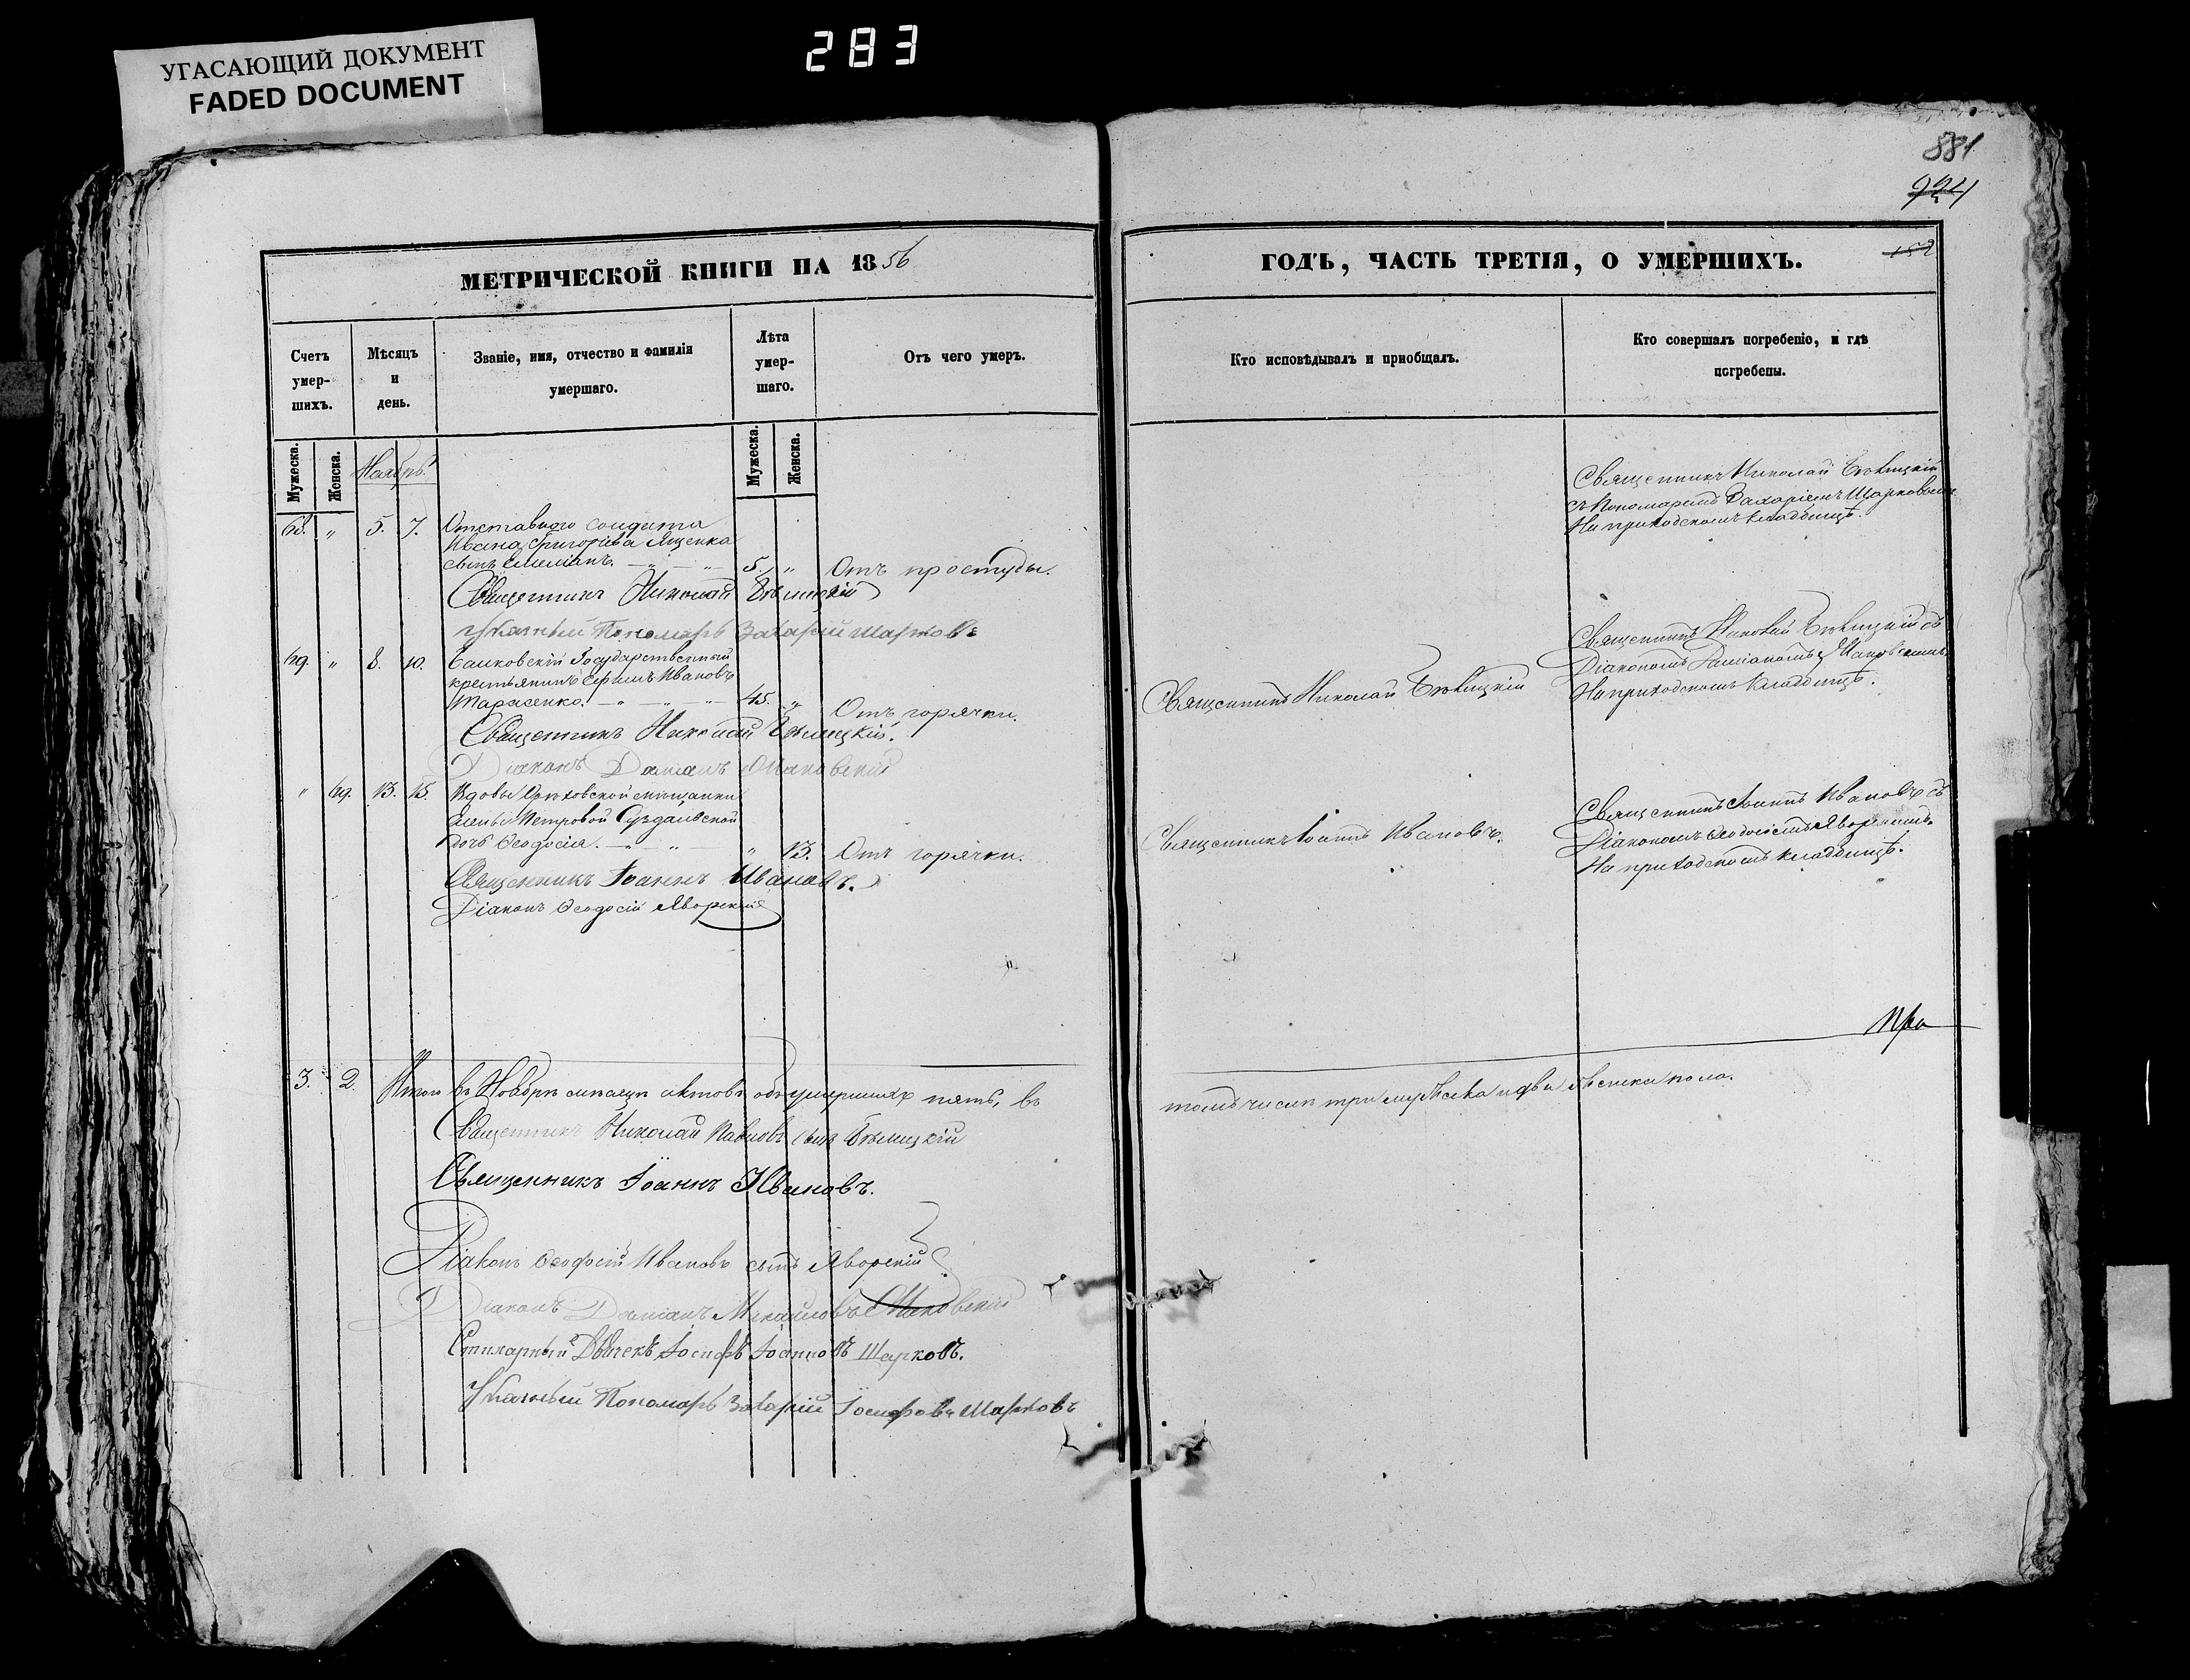 УГАСАЮЩИЙ ДОКУМЕНТ
FADED DOCUMENT
283
881
924
152
МЕТРИЧЕСКОЙ КНИГИ НА 1856
ГОДЪ, ЧАСТЬ ТРЕТІЯ, О УМЕРШИХЪ.
Счетъ умер-шихъ.
Мѣсяцъ и день.
Званіе, имя, отчество и фамилія умершаго.
Лѣта умер-шаго.
Отъ чего умеръ.
Кто исповѣдывалъ и приобщалъ.
Кто совершалъ погребеніе, и гдѣ погребены.
Мужеска.
Женска.
Ноябрь.
Мужеска.
Женска.
68. " 5. 7. Отставного солдата
Ивана Григорьева Ященка
сынъ Емеліанъ. 5. " Отъ простуды.
Священникъ Николай Бѣлицкій
съ Пономаремъ Захаріемъ Шарковымъ
На приходскомъ кладбищѣ.
Священникъ Николай Бѣлицкій
Указный Пономарь Захарій Шарковъ
69. " 8. 10. Государственный
крестьянинъ Ефимъ Ивановъ
Тарасенко. 45. " Отъ горячки.
Священникъ Николай Бѣлицкій
Священникъ Николай Бѣлицкій съ
Діакономъ Даміаномъ Маковскимъ
На приходскомъ кладбищѣ.
Священникъ Николай Бѣлицкій.
Діаконъ Даміанъ Маковскій
" 69. 13. 15. Вдовы Орѣховской мѣщанки
Елены Петровой Суздальской
дочь Ѳеодосія. " 13. Отъ горячки.
Священникъ Іоаннъ Ивановъ.
Священникъ Іоаннъ Ивановъ съ
Діакономъ Ѳеодосіемъ Яворскимъ.
На приходскомъ кладбищѣ.
Священникъ Іоаннъ Ивановъ.
Діаконъ Ѳеодосій Яворскій
3. 2. Итого въ Ноябрѣ мѣсяцѣ актовъ объ умершихъ пять, въ
томъ числѣ три мужеска и два женска пола.
Священникъ Николай Павловъ сынъ Бѣлицкій
Священникъ Іоаннъ Ивановъ.
Діаконъ Ѳеодосій Ивановъ сынъ Яворскій
Діаконъ Даміанъ Михайловъ Маковскій
Стихарный Дьячекъ Іосифъ Іоанновъ Шарковъ.
Указный Пономарь Захарій Іосифовъ Шарковъ